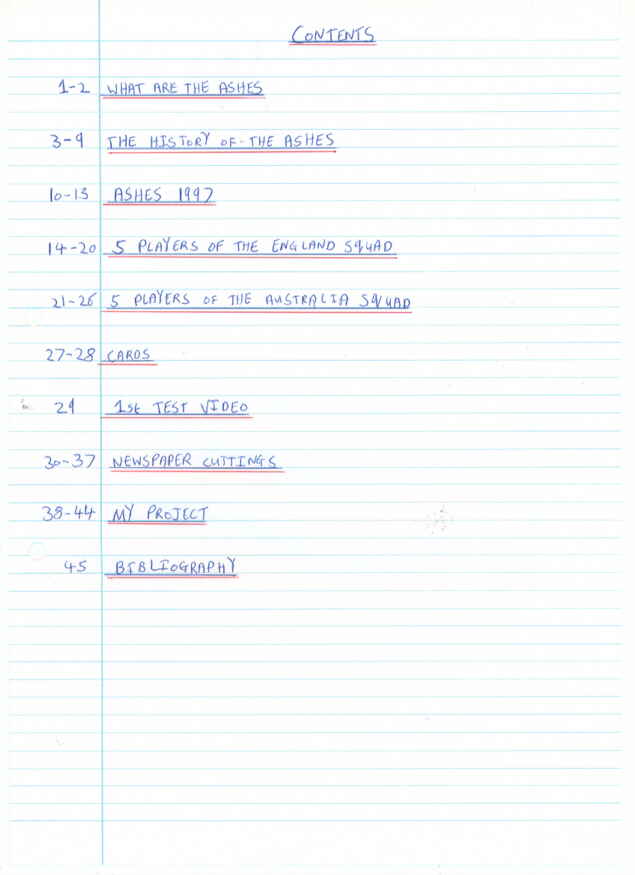 CONTENTS
1-2 WHAT ARE THE ASHES
3-9 THE HISTORY OF THE ASHES
10-13 ASHES 1997
14-20 5 PLAYERS OF THE ENGLAND SQUAD
21-26 5 PLAYERS OF THE AUSTRALIA SQUAD
27-28 CARDS
29 1st TEST VIDEO
30-37 NEWSPAPER CUTTINGS
38-44 MY PROJECT
45 BIBLIOGRAPHY